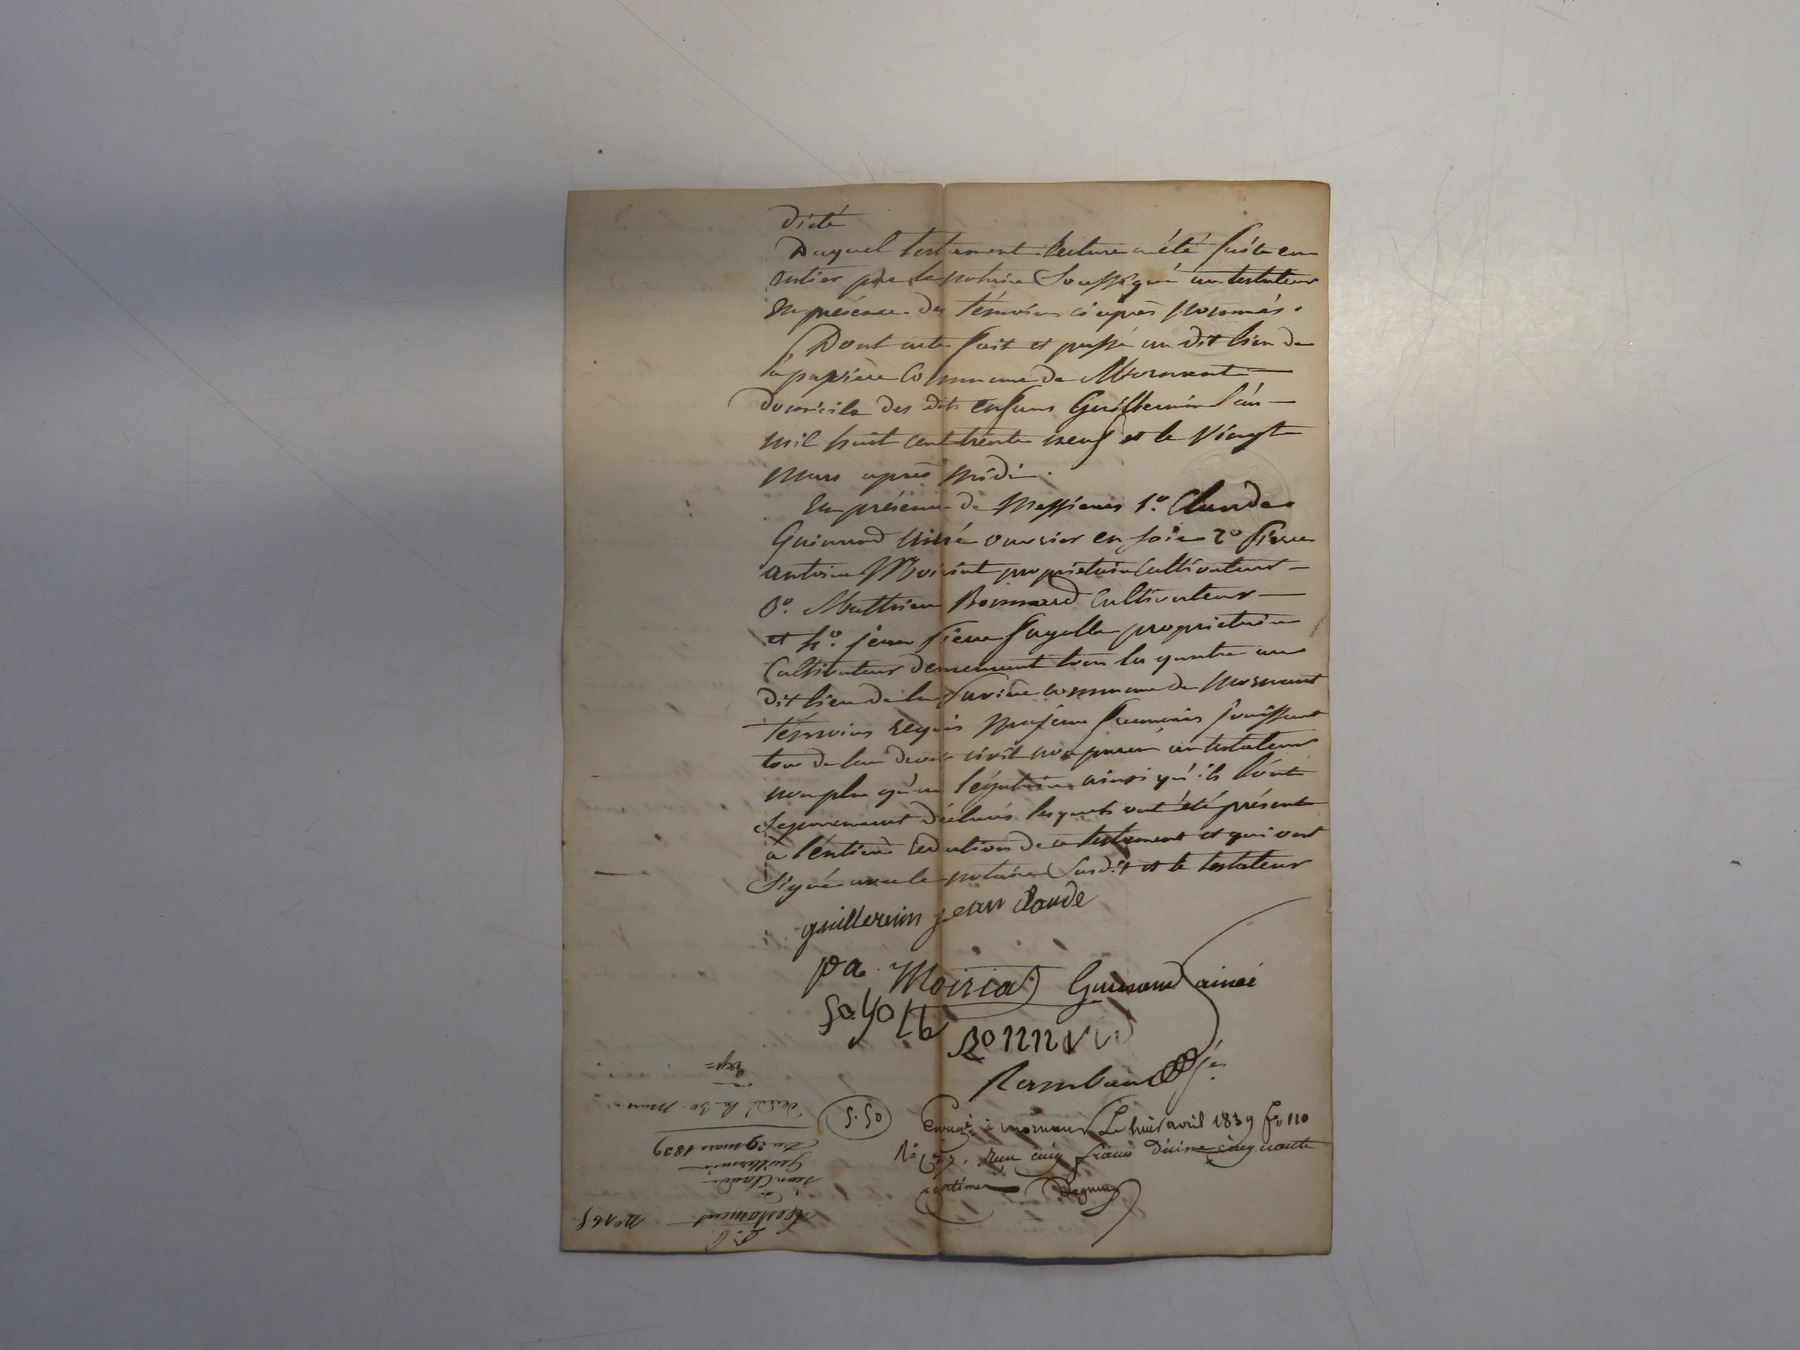 dicté
Duquel testament lecture a été faite en
entier par le notaire soussigné au testateur
en présence des témoins ci après nommés.
Dont acte fait et passé au dit lieu de
commune de Mornant
domicile des dits enfans Guillermin l'an
mil huit cent trente neuf et le vingt
mars après midi.
En présence de Messieurs 1º. Claude
Guinand ainé ouvrier en soie 2º pierre
antoine Moiriat propriétaire cultivateur
3º. Mathieu Bonnard cultivateur
et 4º. jean pierre fayolle propriétaire
cultivateur demeurant tous les quatre au
dit lieu de la commune de Mornant
témoins requis majeurs français jouissant
tous de leur droits civil non parens au testateur
non plus qu'au légataire ainsi qu'ils l'ont
séparement déclarés lesquels ont été présent
à l'entière rédaction de ce testament et qui ont
signé avec le notaire susdit et le testateur
guillermin jean claude
pa. Moiriat Guinand ainé
fayolle
Bonnard
Rambaud
Enregé à mornant Le huit avril 1839 fº 110
Rº. Reçu cinq francs décime cinquante
centimes
5.50
décédé le 30. mars
nº 165
Testament
de
Jean Claude
Guillermin
Du 29 mars 1839